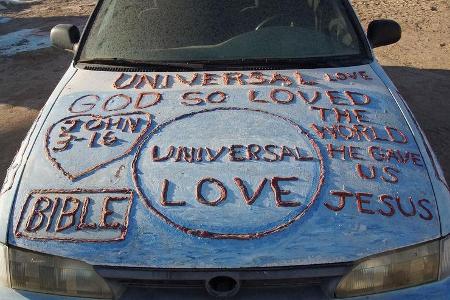 UNIVERSAL LOVE
GOD SO LOVED
THE
WORLD
HE GAVE
US
JESUS
JOHN
3-16
UNIVERSAL
LOVE
BIBLE